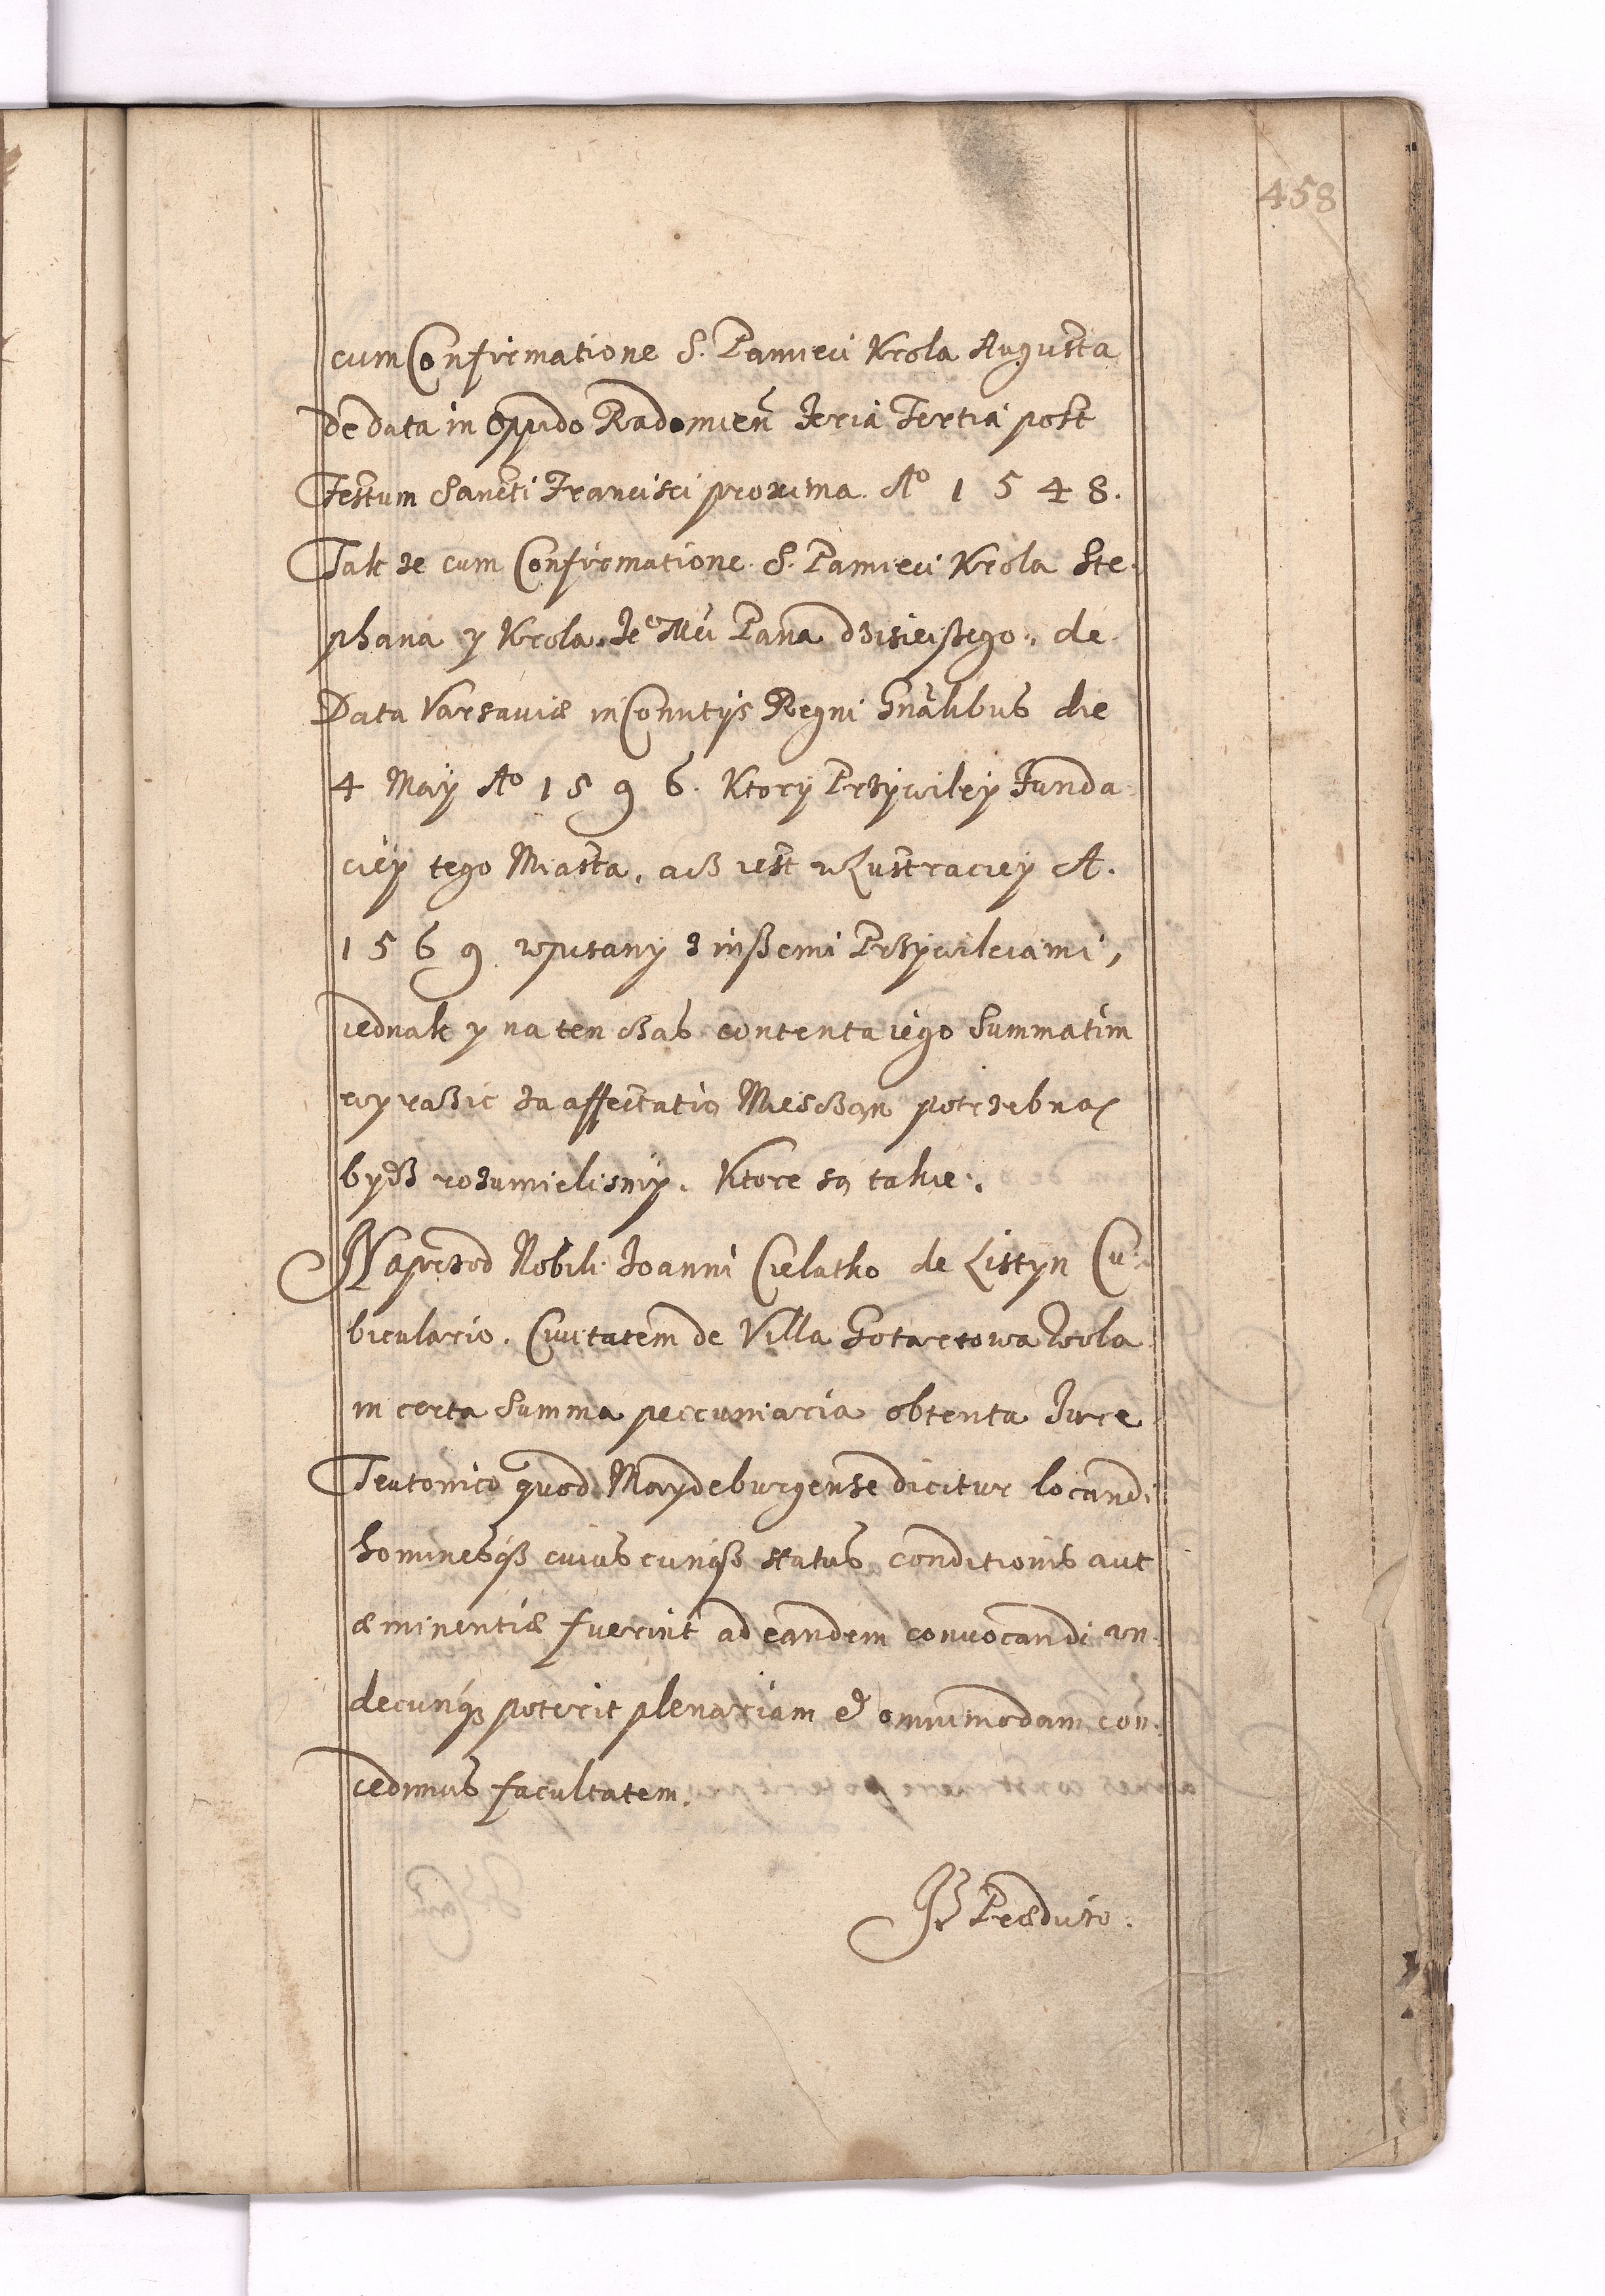 458
cum Confirmatione S. Pamieci Krola Augusta
de data in Oppido Radomien̄ feria Tertia post
Festum Sancti Francisci proxima. Aº 1548.
Tak ze cum Confirmatione S. Pamieci Krola Ste.
phana y Krola Jeº Mci Pana dzisieiszego. de
Data Varsaviæ in Comitijs Regni Gnālibus die
4 Maÿ Aº 1596. Ktorÿ Przÿwileÿ Funda
cieÿ tego Miasta, acz iest w Lustracieÿ A.
1569. wpisanÿ z inszemi Przÿwileiami,
iednak y na ten czas contenta iego Summatim
wyrazic za affectatią Mieszczan potrzebną
bydz rozumielismÿ. Ktore są takie.
Naprzod Nobili Joanni Cielatko de Listÿn Cu.
biculario. Civitatem de Villa Gotartowa Wola
in certa Summa peccuniaria obtenta Jure
Teutonico quod Maydeburgense dicitur locandi
hominesqȝ cuiuscunqȝ status conditionis aut
æminentiæ fuerint ad eandem convocandi un.
decunqȝ poterit plenariam et omnimodam con.
cedimus facultatem.
Jt Præduio.